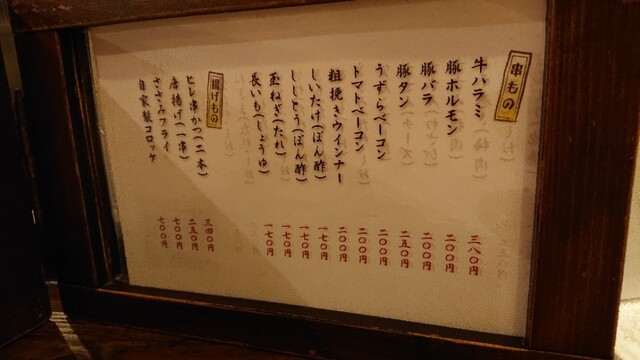 串もの
牛ハラミ 三八〇円
豚ホルモン 二〇〇円
豚バラ 二〇〇円
豚タン 二五〇円
うずらベーコン 二〇〇円
トマトベーコン 二〇〇円
粗挽きウインナー 二〇〇円
しいたけ(ぽん酢) 一七〇円
ししとう(ぽん酢) 一七〇円
玉ねぎ(たれ) 一七〇円
長いも(しょうゆ) 一七〇円
揚げもの
ヒレ串かつ(二本) 三四〇円
唐揚げ(一串) 二五〇円
ささみフライ 七〇〇円
自家製コロッケ 七〇〇円